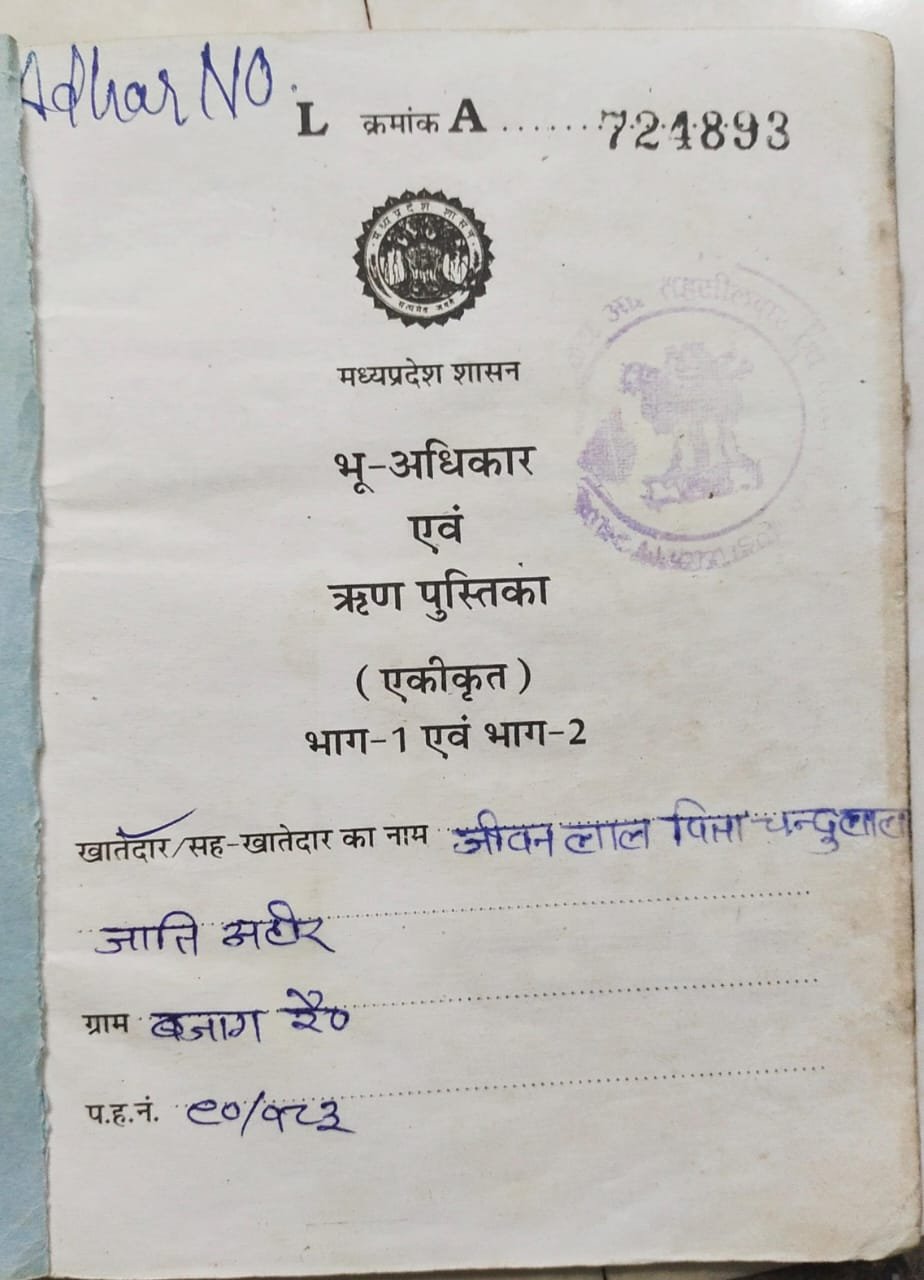 Adhar NO.
L क्रमांक A .......724893
मध्यप्रदेश शासन
सत्यमेव जयते
मध्यप्रदेश शासन
भू-अधिकार
एवं
ऋण पुस्तिका
(एकीकृत)
भाग-1 एवं भाग-2
खातेदार/सह-खातेदार का नाम जीवन लाल पिता चन्दुलाल
जाति अहीर
ग्राम बजाग रै०
प.ह.नं. ९०/१८३